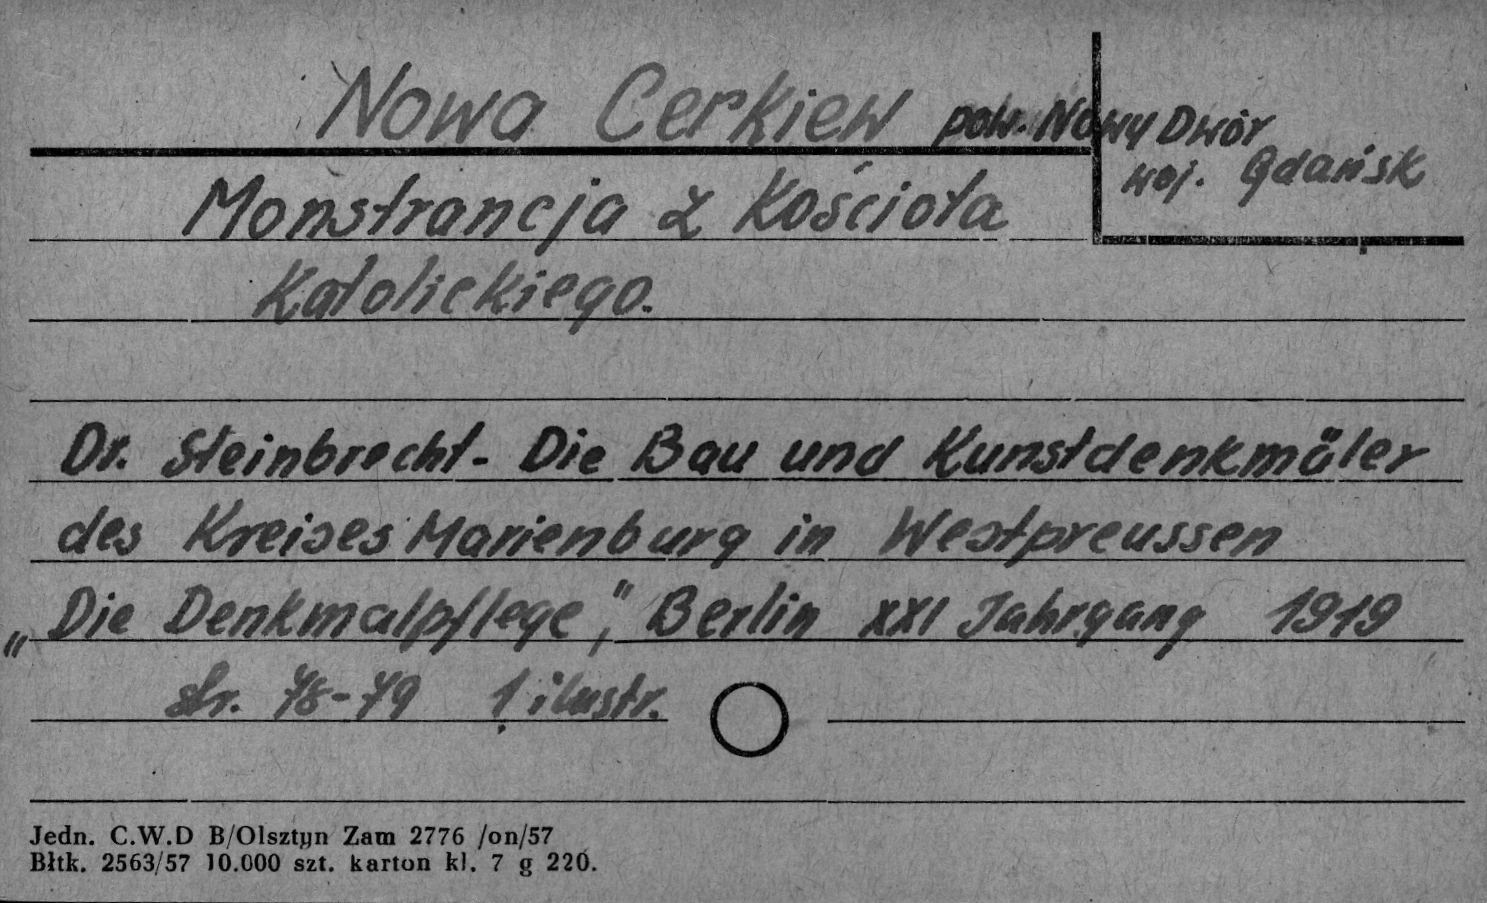 Nowa Cerkiew pow. Nowy Dwór
woj. Gdańsk
Monstrancja z Kościoła
Katolickiego.
Dr. Steinbrecht - Die Bau und Kunstdenkmäler
des Kreises Marienburg in Westpreussen
„Die Denkmalpflege", Berlin XXI Jahrgang 1919
str. 78-79 1 ilustr.
Jedn. C.W.D B/Olsztyn Zam 2776 /on/57
Błtk. 2563/57 10.000 szt. karton kl. 7 g 220.